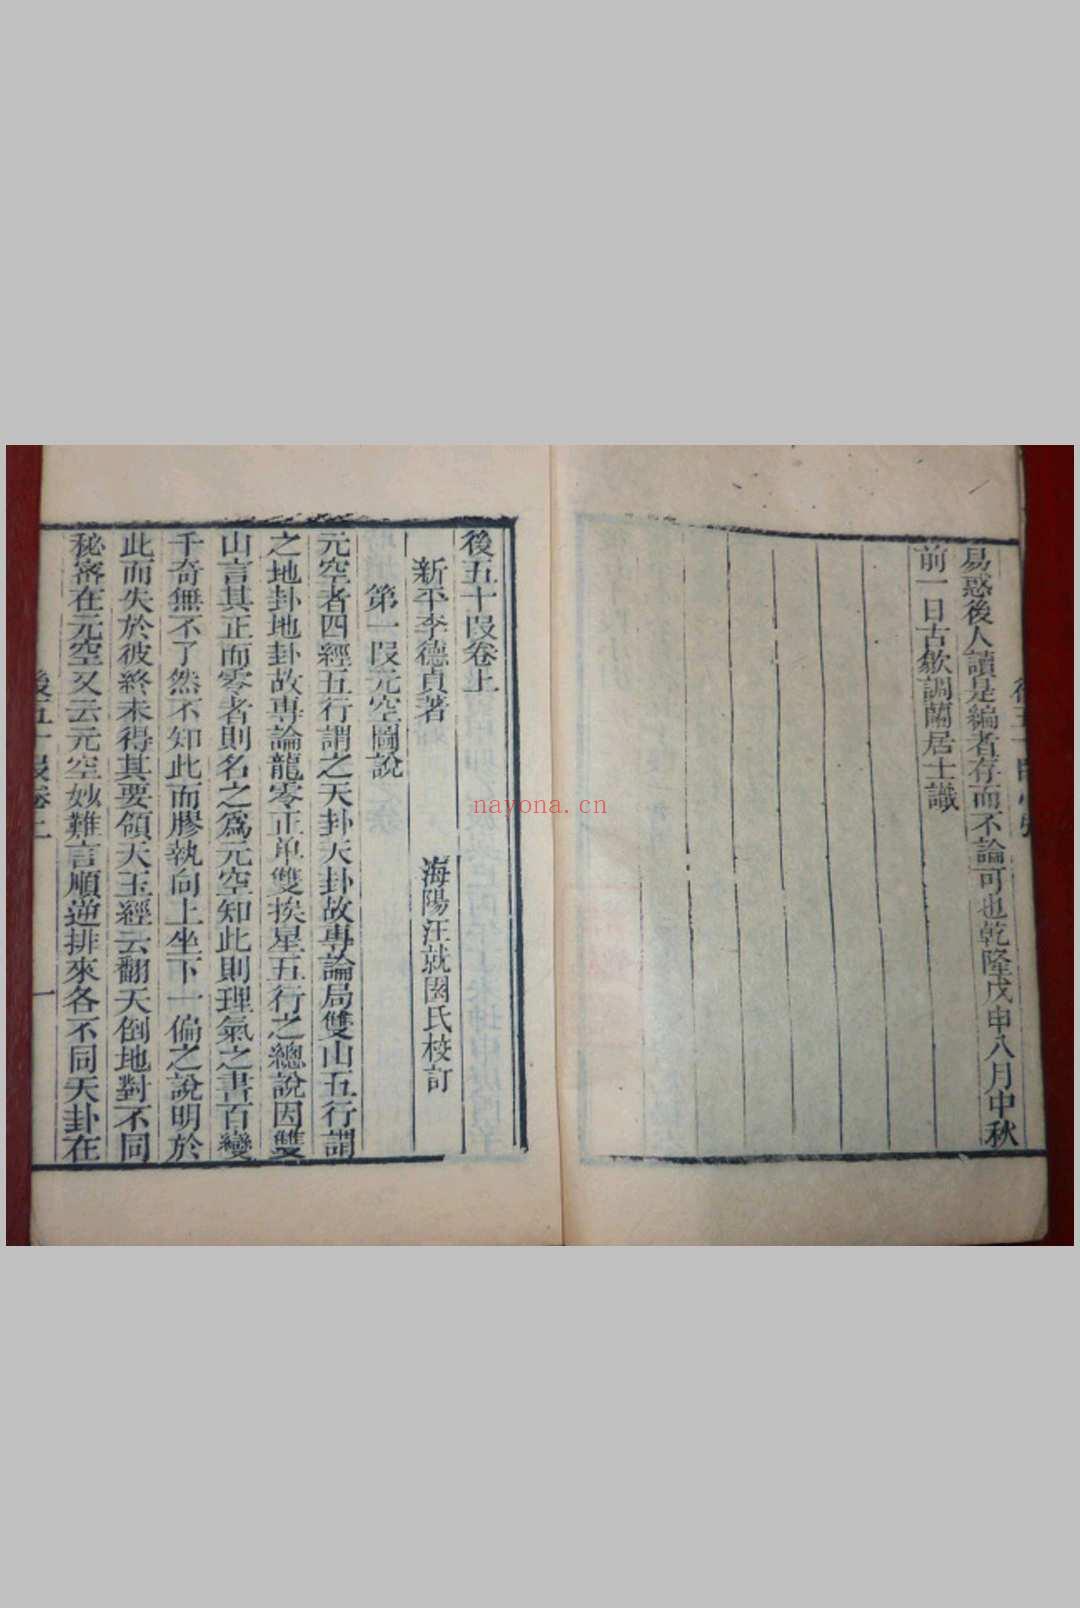 易惑後人讀是編者存而不論可也乾隆戊申八月中秋
前一日古歙調蘭居士識
後五十段卷上
新平李德貞著
海陽汪就國氏校訂
第一段元空圖說
元空者四經五行謂之天卦天卦故專論局雙山五行謂
之地卦地卦故專論龍零正单雙挨星五行之總說因雙
山言其正而零者則名之爲元空知此則理氣之書百變
千奇無不了然不知此而膠執向上坐下一偏之說明於
此而失於彼終未得其要領天玉經云翻天倒地對不同
秘密在元空又云元空妙難言順逆排來各不同天卦在
後五十段卷上
一
nayona.cn